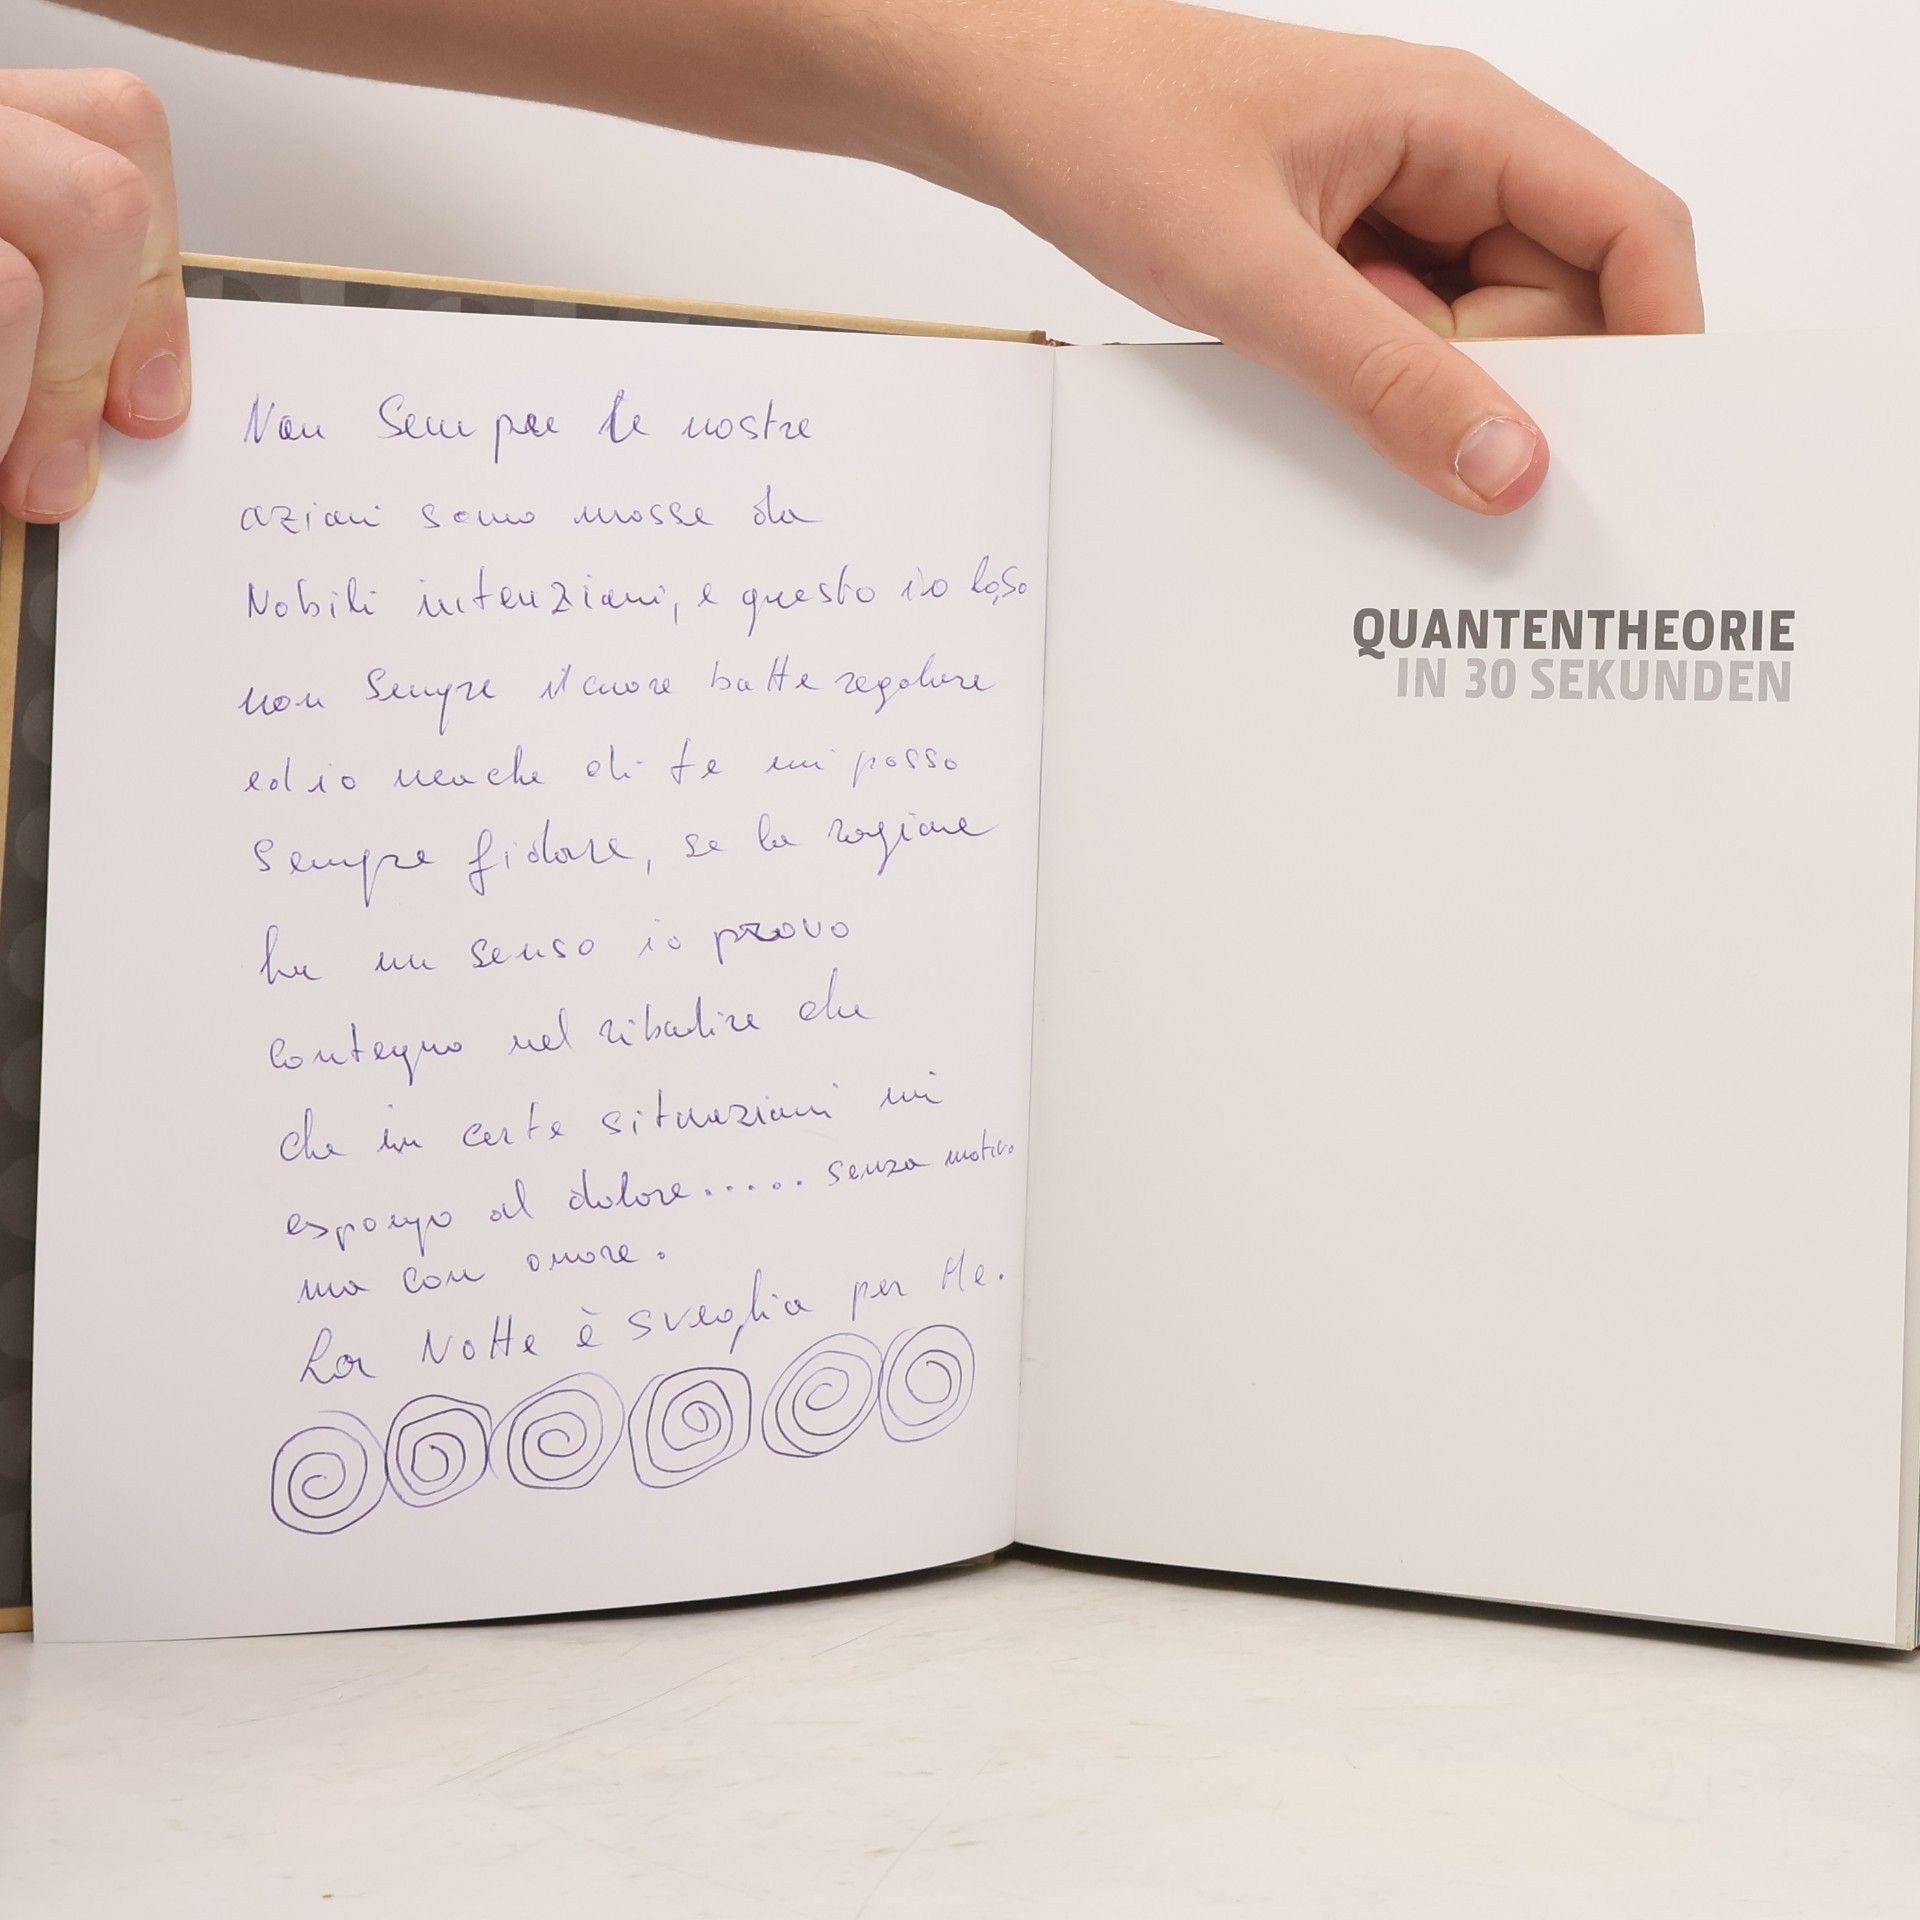 Non Sempre le nostre
azioni sono mosse da
Nobili intenzioni, e questo io lo so
non Sempre il cuore batte regolare
ed io neache di te mi posso
Sempre fidare, se la ragione
ha un senso io provo
contegno nel ribadire che
che in certe situazioni mi
espongo al dolore..... senza motivo
ma con onore.
La Notte è sveglia per Me.
QUANTENTHEORIE
IN 30 SEKUNDEN